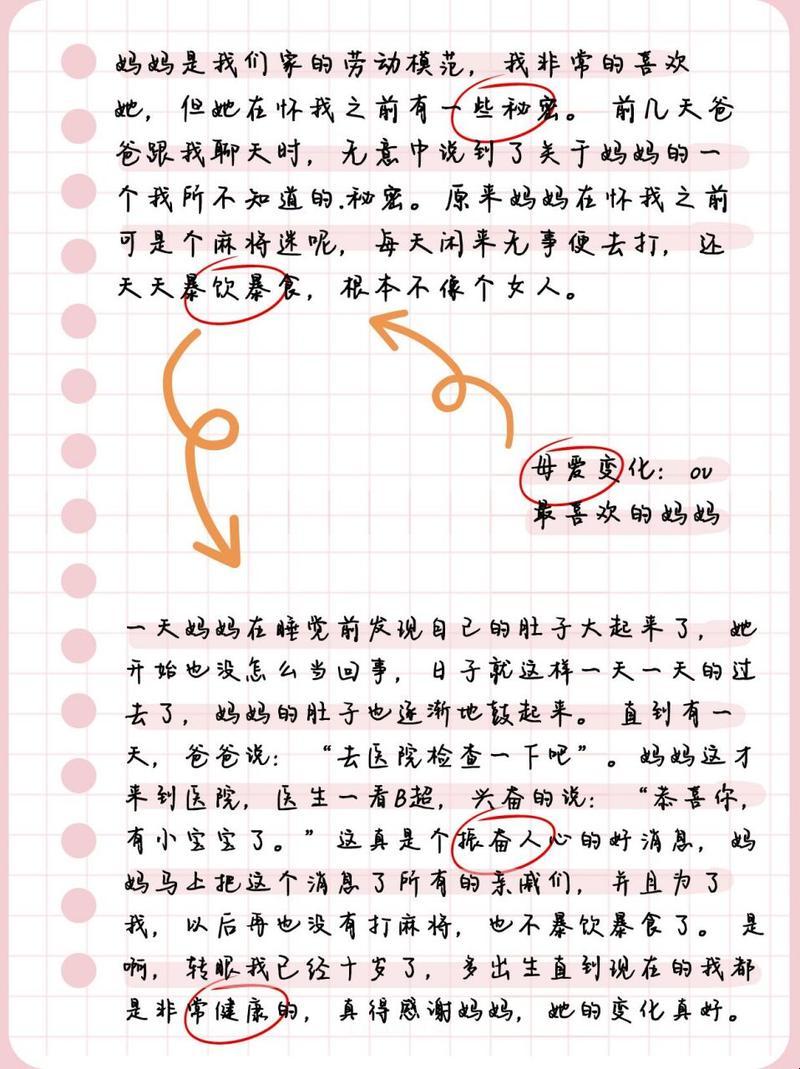 妈妈是我们家的劳动模范，我非常的喜欢
她，但她在怀我之前有一些秘密。前几天爸
爸跟我聊天时，无意中说到了关于妈妈的一
个我所不知道的.秘密。原来妈妈在怀我之前
可是个麻将迷呢，每天闲来无事便去打，还
天天暴饮暴食，根本不像个女人。
母爱变化：ou
最喜欢的妈妈
一天妈妈在睡觉前发现自己的肚子大起来了，她
开始也没怎么当回事，日子就这样一天一天的过
去了，妈妈的肚子也逐渐地鼓起来。直到有一
天，爸爸说：“去医院检查一下吧”。妈妈这才
来到医院，医生一看B超，兴奋的说：“恭喜你，
有小宝宝了。”这真是个振奋人心的好消息，妈
妈马上把这个消息了所有的亲戚们，并且为了
我，以后再也没有打麻将，也不暴饮暴食了。是
啊，转眼我已经十岁了，多出生直到现在的我都
是非常健康的，真得感谢妈妈，她的变化真好。